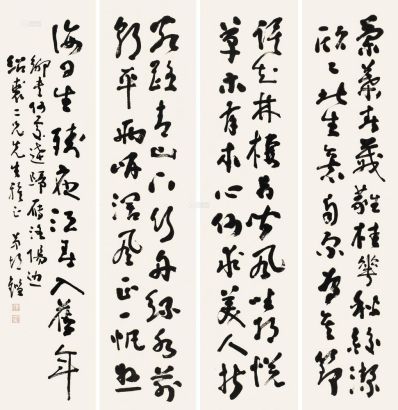 蘭葉春葳蕤桂華秋皎潔
欣々此生意自爾為佳節
誰知林棲者聞風坐相悅
草木有本心何求美人折
客路青山下行舟綠水前
潮平兩岸闊風正一帆懸
海日生殘夜江春入舊年
鄉書何處達歸雁洛陽邊
二兄先生雅正